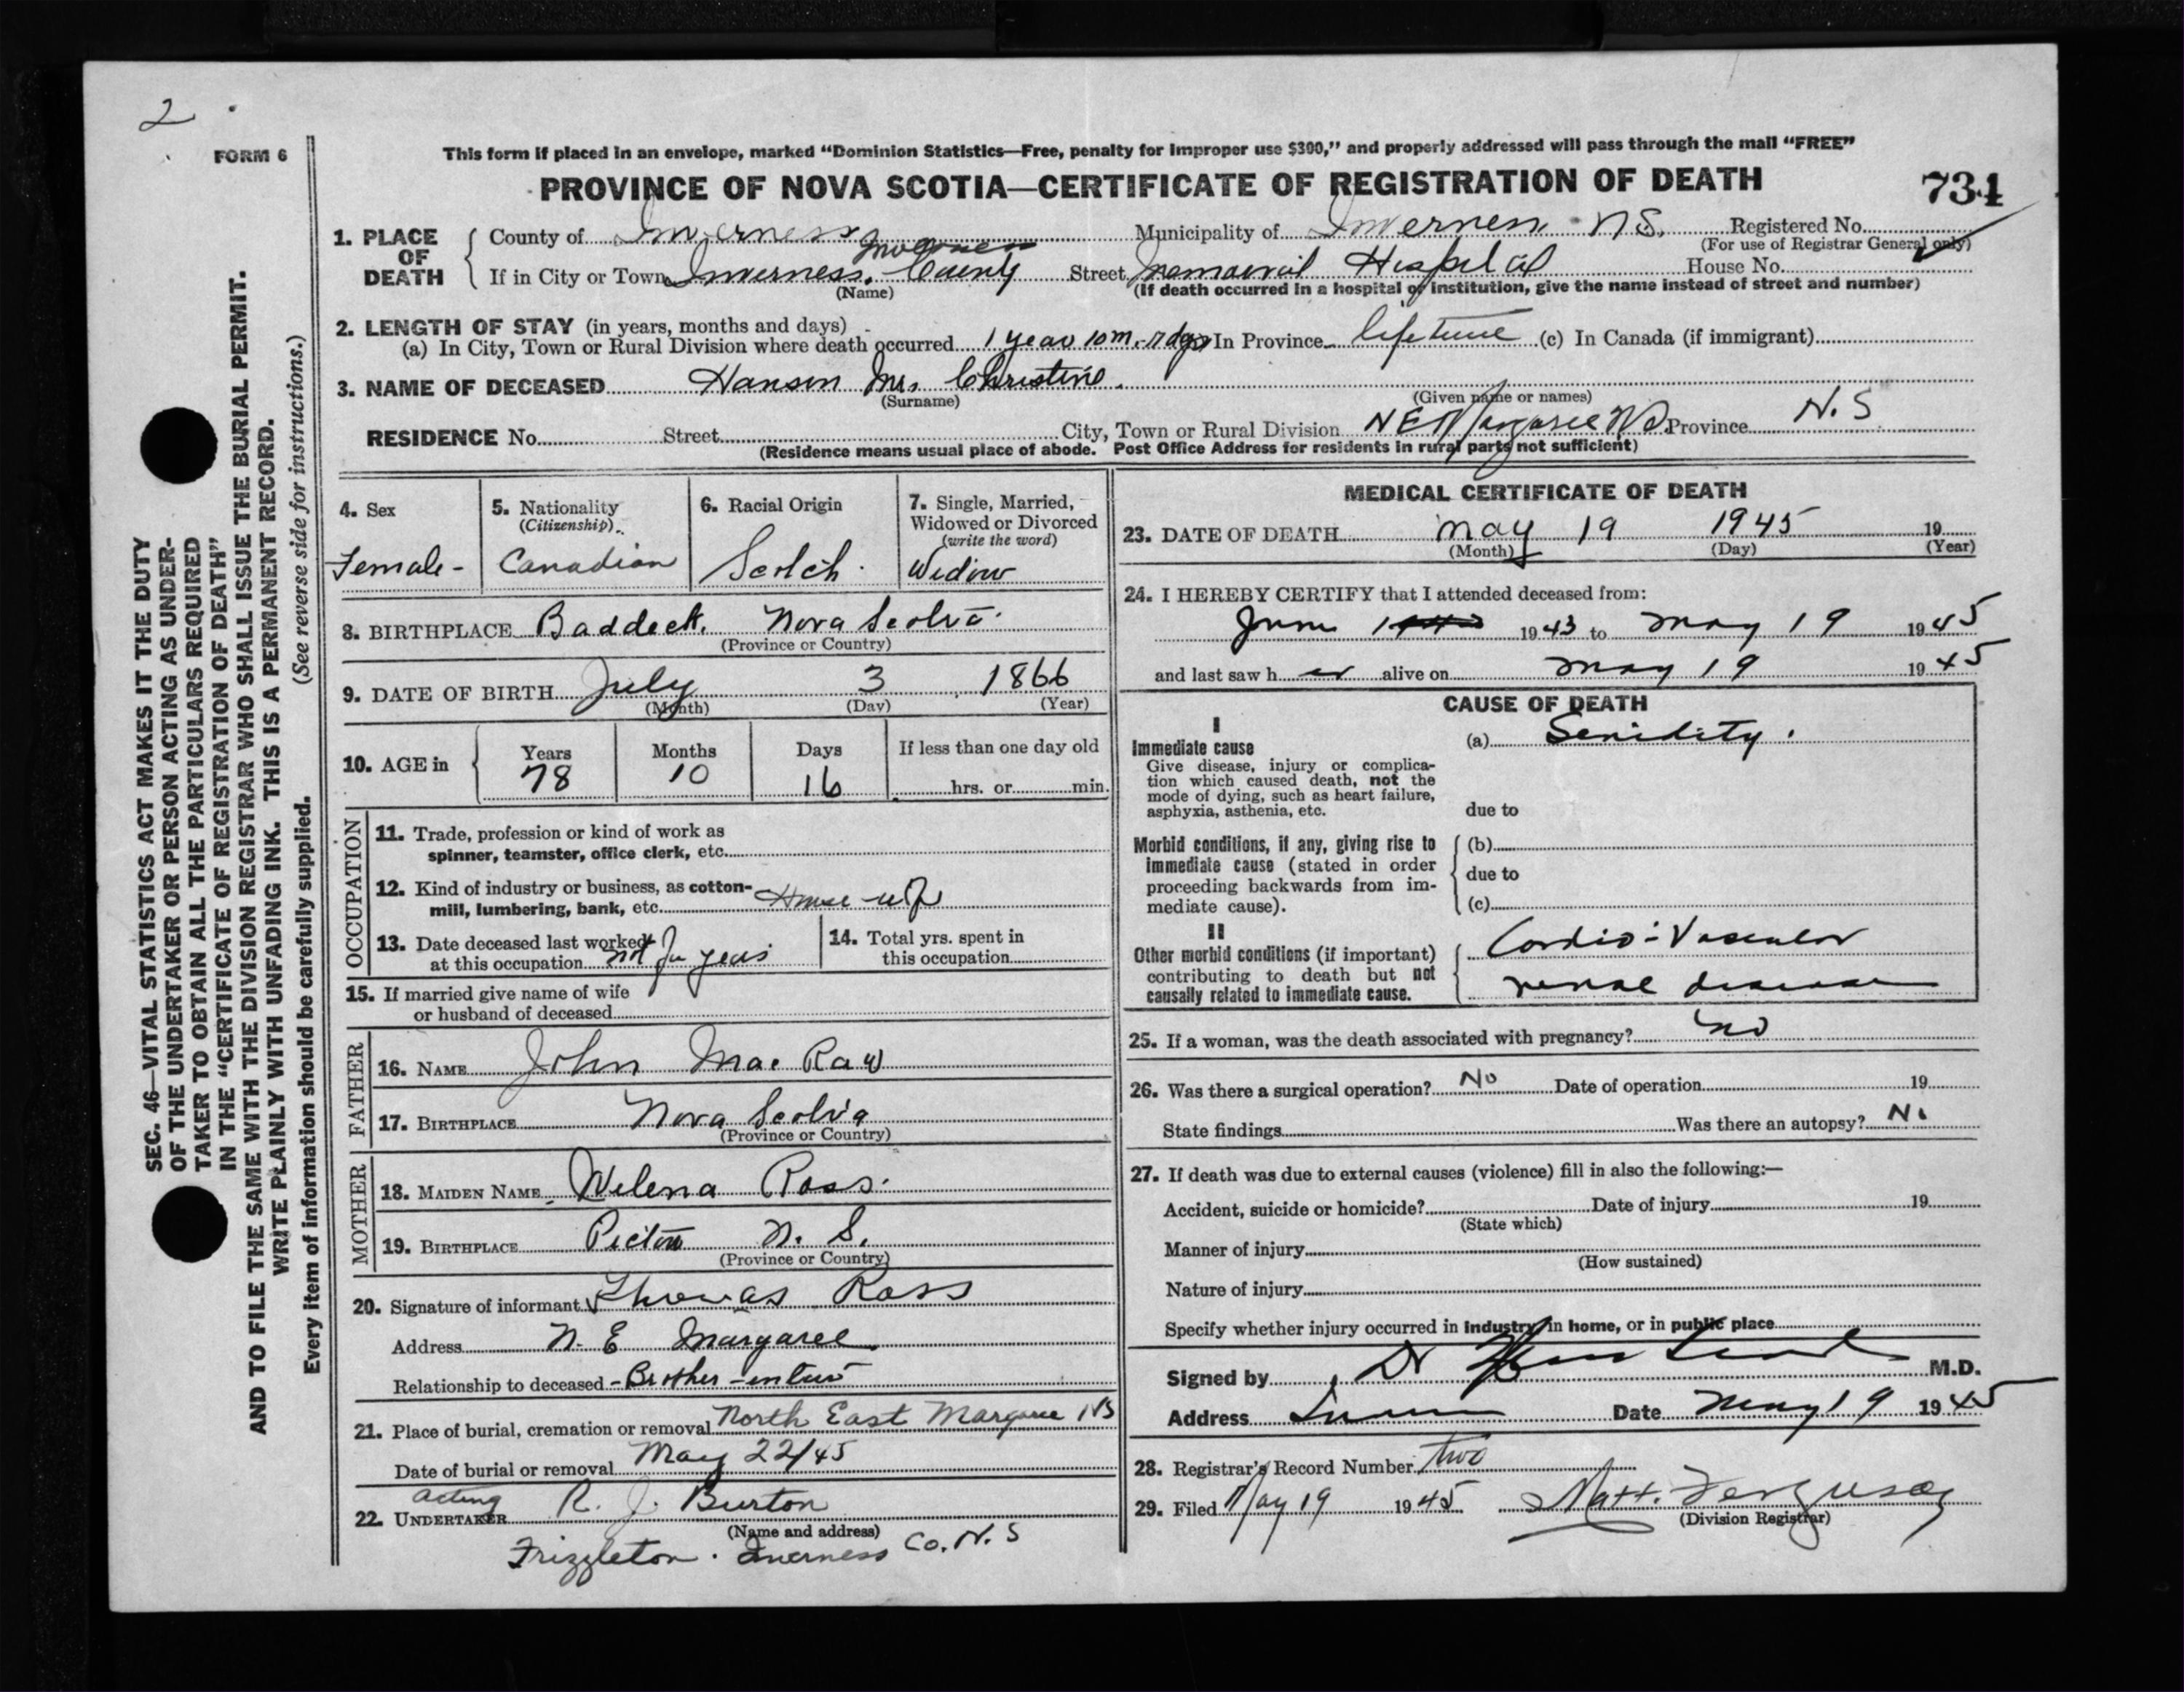 2
FORM 6
This form if placed in an envelope, marked “Dominion Statistics—Free, penalty for improper use $300,” and properly addressed will pass through the mail “FREE”
PROVINCE OF NOVA SCOTIA—CERTIFICATE OF REGISTRATION OF DEATH
734
1. PLACE OF DEATH
County of Inverness Municipality of Inverness N.S. Registered No.
(For use of Registrar General only)
Inverness
If in City or Town Inverness, County Street Memorial Hospital House No.
(Name) (If death occurred in a hospital or institution, give the name instead of street and number)
2. LENGTH OF STAY (in years, months and days)
(a) In City, Town or Rural Division where death occurred 1 year 10 m. 17 dys In Province lifetime (c) In Canada (if immigrant)
3. NAME OF DECEASED Hanson Mrs Christine.
(Surname) (Given name or names)
RESIDENCE No. Street City, Town or Rural Division N E Margaree NS Province N.S
(Residence means usual place of abode. Post Office Address for residents in rural parts not sufficient)
4. Sex
Female -
5. Nationality
(Citizenship)
Canadian
6. Racial Origin
Scotch.
7. Single, Married,
Widowed or Divorced
(write the word)
Widow
8. BIRTHPLACE Baddeck. Nova Scotia.
(Province or Country)
9. DATE OF BIRTH July 3, 1866
(Month) (Day) (Year)
10. AGE in
Years Months Days If less than one day old
78 10 16 hrs. or min.
OCCUPATION
11. Trade, profession or kind of work as
spinner, teamster, office clerk, etc.
12. Kind of industry or business, as cotton-
mill, lumbering, bank, etc. House-wife
13. Date deceased last worked
at this occupation not for years
14. Total yrs. spent in
this occupation
15. If married give name of wife
or husband of deceased
FATHER
16. NAME John Mac Raw
17. BIRTHPLACE Nova Scotia
(Province or Country)
MOTHER
18. MAIDEN NAME Welena Ross.
19. BIRTHPLACE Pictou N. S.
(Province or Country)
20. Signature of informant Thomas Ross
Address N. E Margaree
Relationship to deceased - Brother-in law
21. Place of burial, cremation or removal North East Margaree NS
Date of burial or removal May 22/45
acting
22. UNDERTAKER R. J. Burton
(Name and address)
Frizzleton. Inverness Co. N. S
MEDICAL CERTIFICATE OF DEATH
23. DATE OF DEATH May 19 1945 19
(Month) (Day) (Year)
24. I HEREBY CERTIFY that I attended deceased from:
June 1 1943 to May 19 1945
and last saw her alive on May 19 1945
CAUSE OF DEATH
I
Immediate cause
Give disease, injury or complica-
tion which caused death, not the
mode of dying, such as heart failure,
asphyxia, asthenia, etc.
(a) Senidity.
due to
Morbid conditions, if any, giving rise to
immediate cause (stated in order
proceeding backwards from im-
mediate cause).
(b)
due to
(c)
II
Other morbid conditions (if important)
contributing to death but not
causally related to immediate cause.
Cardio-Vascular
renal disease
25. If a woman, was the death associated with pregnancy? no
26. Was there a surgical operation? No Date of operation 19
State findings Was there an autopsy? No
27. If death was due to external causes (violence) fill in also the following:—
Accident, suicide or homicide? Date of injury 19
(State which)
Manner of injury
(How sustained)
Nature of injury
Specify whether injury occurred in industry, in home, or in public place
Signed by M.D.
Address Date May 19 1945
28. Registrar's Record Number two
29. Filed May 19 1945 Matt. Ferguson
(Division Registrar)
SEC. 46—VITAL STATISTICS ACT MAKES IT THE DUTY
OF THE UNDERTAKER OR PERSON ACTING AS UNDER-
TAKER TO OBTAIN ALL THE PARTICULARS REQUIRED
IN THE “CERTIFICATE OF REGISTRATION OF DEATH”
AND TO FILE THE SAME WITH THE DIVISION REGISTRAR WHO SHALL ISSUE THE BURIAL PERMIT.
WRITE PLAINLY WITH UNFADING INK. THIS IS A PERMANENT RECORD.
Every item of information should be carefully supplied. (See reverse side for instructions.)